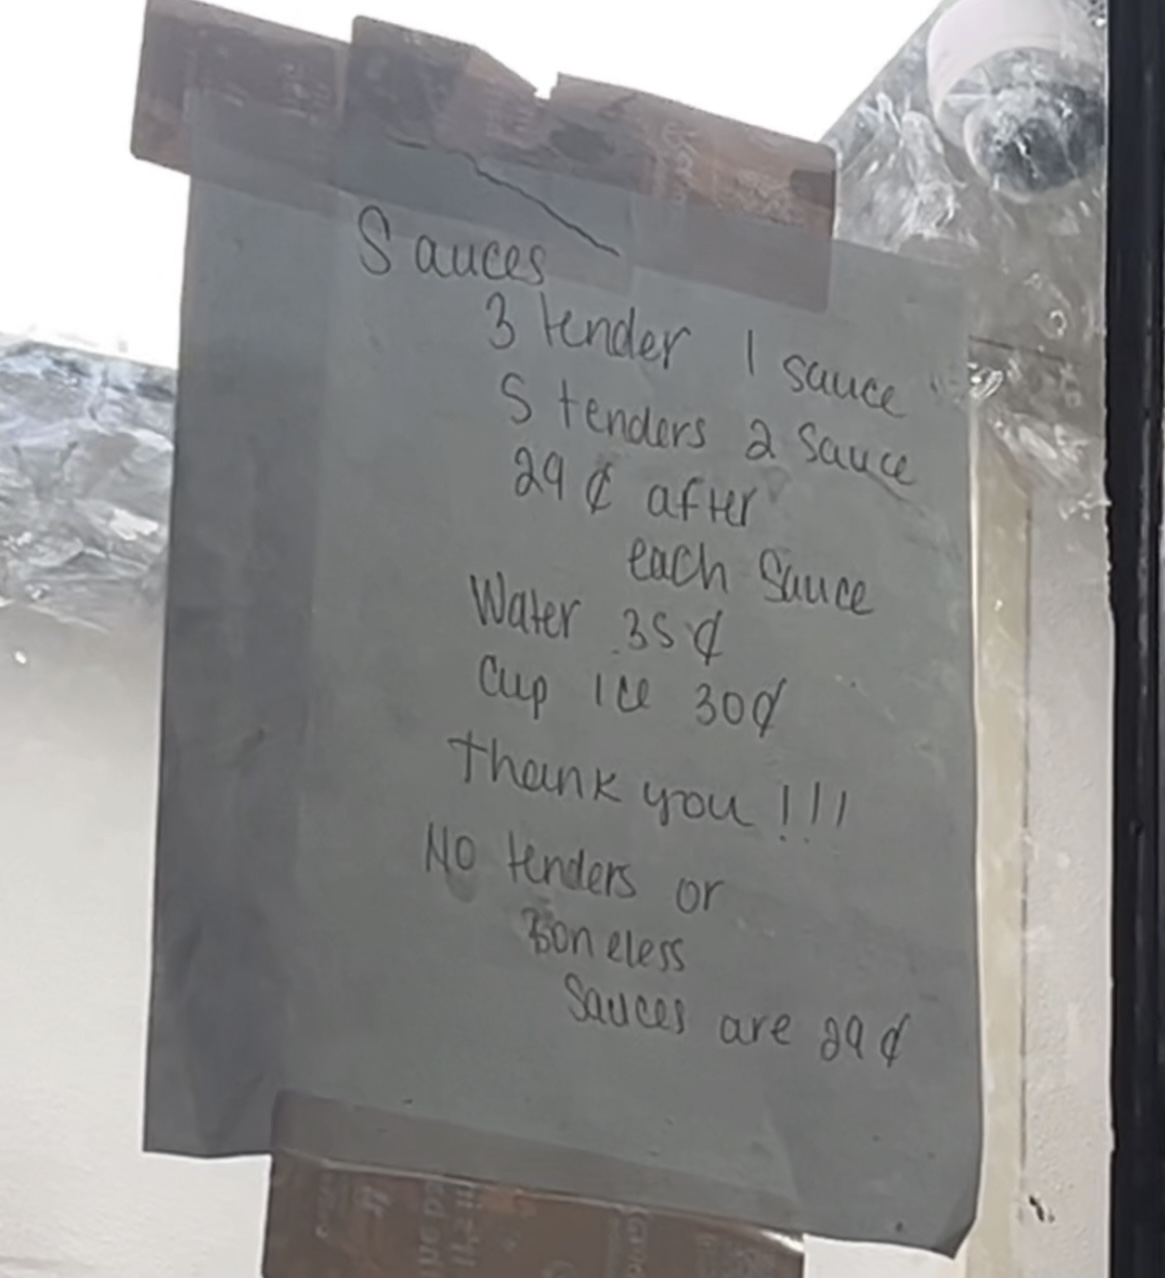 Sauces
3 tender 1 sauce
5 tenders 2 sauce
29 ¢ after
each sauce
Water .35 ¢
Cup ice 30¢
thank you !!!
No tenders or
Boneless
Sauces are 29 ¢